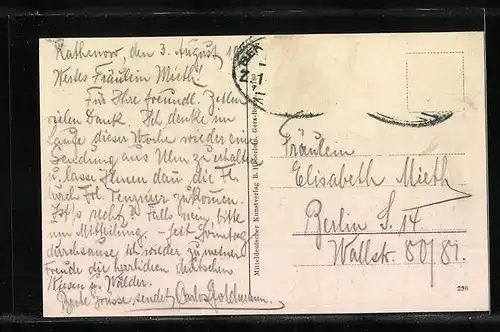 Rathenow, den 3. August 19
Wertes Fräulein Mieth!
Für Ihre freundl. Zeilen
vielen Dank. Ich denke im
Laufe dieser Woche wieder eine
Sendung aus Ulm zu erhalten
u. lasse Ihnen dann die
durch Frl. zukommen.
Ist's recht? Falls nein, bitte
um Mittheilung. – Jetzt Sonntag
durchsause ich wieder zu meiner
Freude die herrlichen deutschen
Wiesen u. Wälder.
Beste Grüsse sendet Carlos Goldmann.
Mitteldeutscher Kunstverlag
Fräulein
Elisabeth Mieth
Berlin S. 14
Wallstr. 80/81.
290